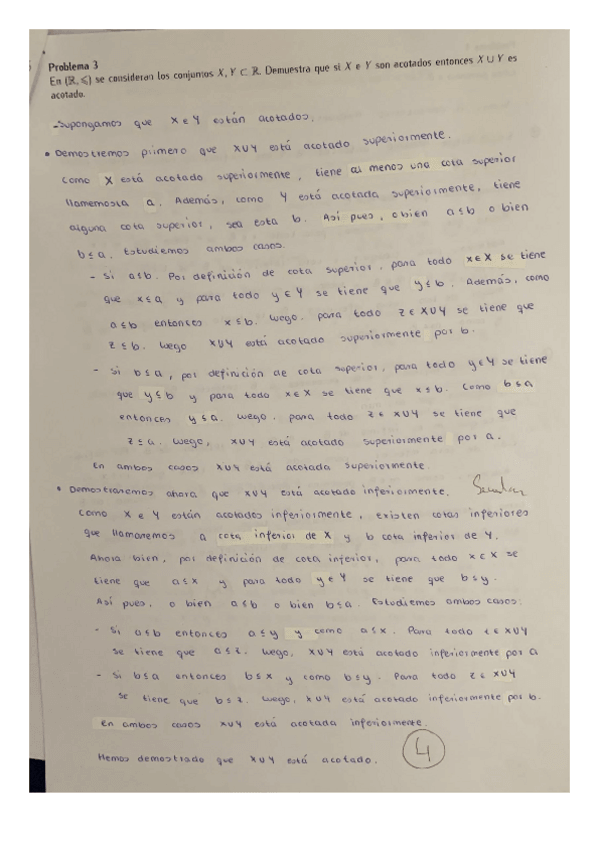 Problema 3
En (ℝ, ⩽) se consideran los conjuntos X, Y ⊂ ℝ. Demuestra que si X e Y son acotados entonces X ∪ Y es
acotado.
- Supongamos que X e Y están acotados.
• Demostremos primero que X∪Y está acotado superiormente.
Como X está acotado superiormente, tiene al menos una cota superior
llamemosla a. Además, como Y está acotada superiormente, tiene
alguna cota superior, sea esta b. Así pues, o bien a≤b o bien
b≤a. Estudiemos ambos casos.
- Si a≤b. Por definición de cota superior, para todo x∈X se tiene
que x≤a y para todo y∈Y se tiene que y≤b. Además, como
a≤b entonces x≤b. Luego, para todo z∈X∪Y se tiene que
z≤b. Luego X∪Y está acotado superiormente por b.
- Si b≤a, por definición de cota superior, para todo y∈Y se tiene
que y≤b y para todo x∈X se tiene que x≤b. Como b≤a
entonces y≤a. Luego, para todo z∈X∪Y se tiene que
z≤a. Luego, X∪Y está acotado superiormente por a.
En ambos casos X∪Y está acotada superiormente.
• Demostraremos ahora que X∪Y está acotado inferiormente.
Como X e Y están acotados inferiormente, existen cotas inferiores
que llamaremos a cota inferior de X y b cota inferior de Y.
Ahora bien, por definición de cota inferior, para todo x∈X se
tiene que a≤x y para todo y∈Y se tiene que b≤y.
Así pues, o bien a≤b o bien b≤a. Estudiemos ambos casos:
- Si a≤b entonces a≤y y como a≤x. Para todo z∈X∪Y
se tiene que a≤z. Luego, X∪Y está acotado inferiormente por a
- Si b≤a entonces b≤x y como b≤y. Para todo z∈X∪Y
se tiene que b≤z. Luego, X∪Y está acotado inferiormente por b.
En ambos casos X∪Y está acotada inferiormente.
Hemos demostrado que X∪Y está acotado.
4